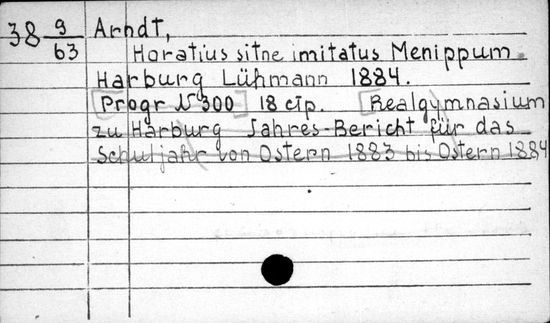 38 9/63 Arndt,
Horatius sitne imitatus Menippum.
Harburg Lühmann 1884.
[Progr № 300] 18 стр. [Realgymnasium
zu Harburg Jahres-Bericht für das
Schuljahr von Ostern 1883 bis Ostern 1884